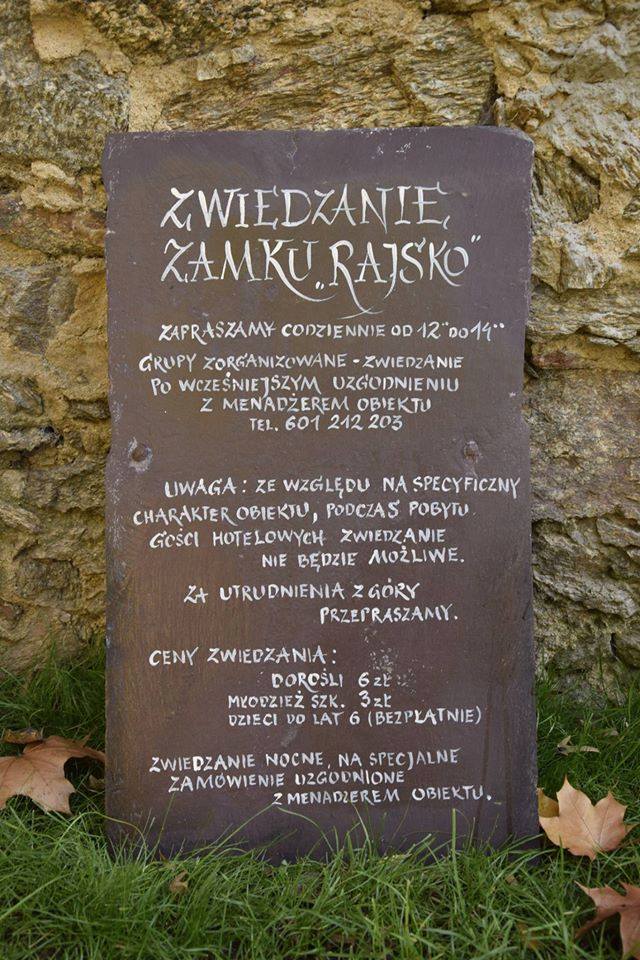 ZWIEDZANIE
ZAMKU „RAJSKO”
ZAPRASZAMY CODZIENNIE OD 12°° DO 14°°
GRUPY ZORGANIZOWANE - ZWIEDZANIE
PO WCZEŚNIEJSZYM UZGODNIENIU
Z MENADŻEREM OBIEKTU
TEL. 601 212 203
UWAGA: ZE WZGLĘDU NA SPECYFICZNY
CHARAKTER OBIEKTU, PODCZAS POBYTU
GOŚCI HOTELOWYCH ZWIEDZANIE
NIE BĘDZIE MOŻLIWE.
ZA UTRUDNIENIA Z GÓRY
PRZEPRASZAMY.
CENY ZWIEDZANIA:
DOROŚLI 6 zł
MŁODZIEŻ SZK. 3 zł
DZIECI DO LAT 6 (BEZPŁATNIE)
ZWIEDZANIE NOCNE, NA SPECJALNE
ZAMÓWIENIE UZGODNIONE
Z MENADZEREM OBIEKTU.